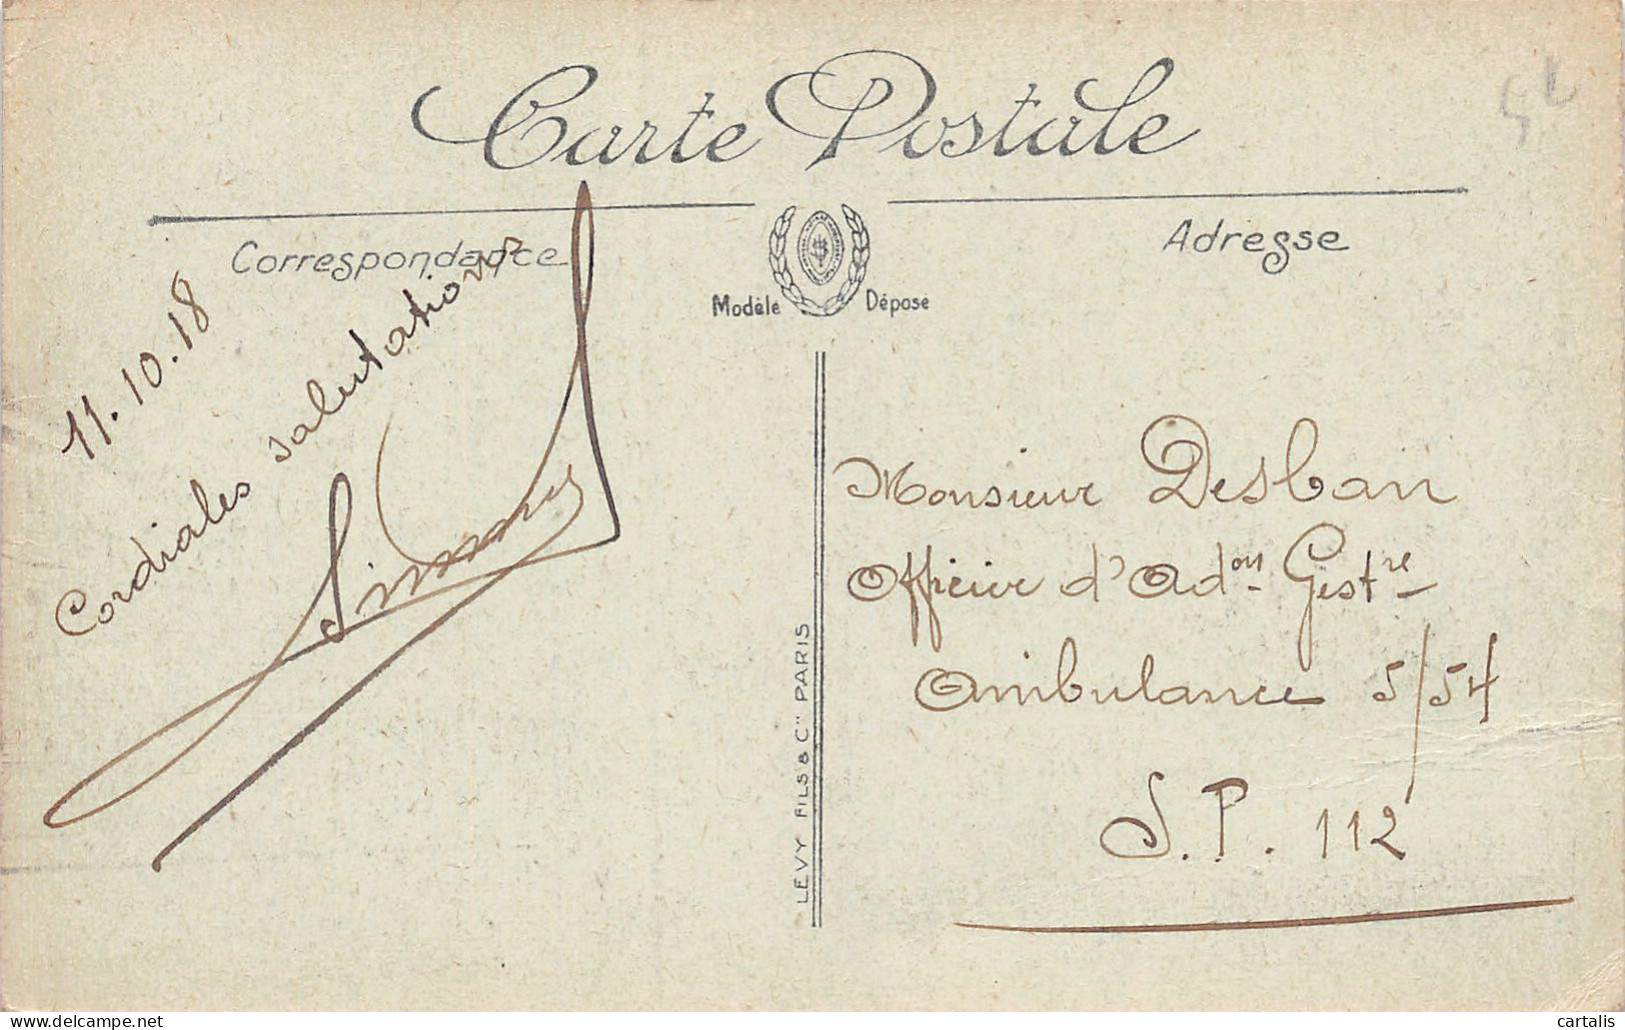 Carte Postale
Correspondance
Adresse
Modèle Déposé
11.10.18
Cordiales salutations
Monsieur Desban
Officier d'Adon Gestre
Ambulance 5/54
S.P. 112
LEVY FILS & Cie PARIS
delcampe.net
cartalis